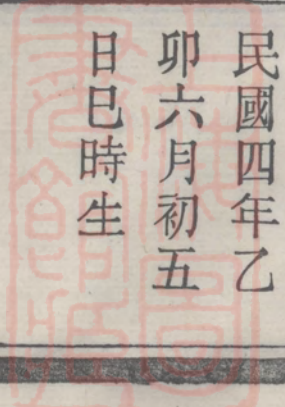 民國四年乙
卯六月初五
日巳時生